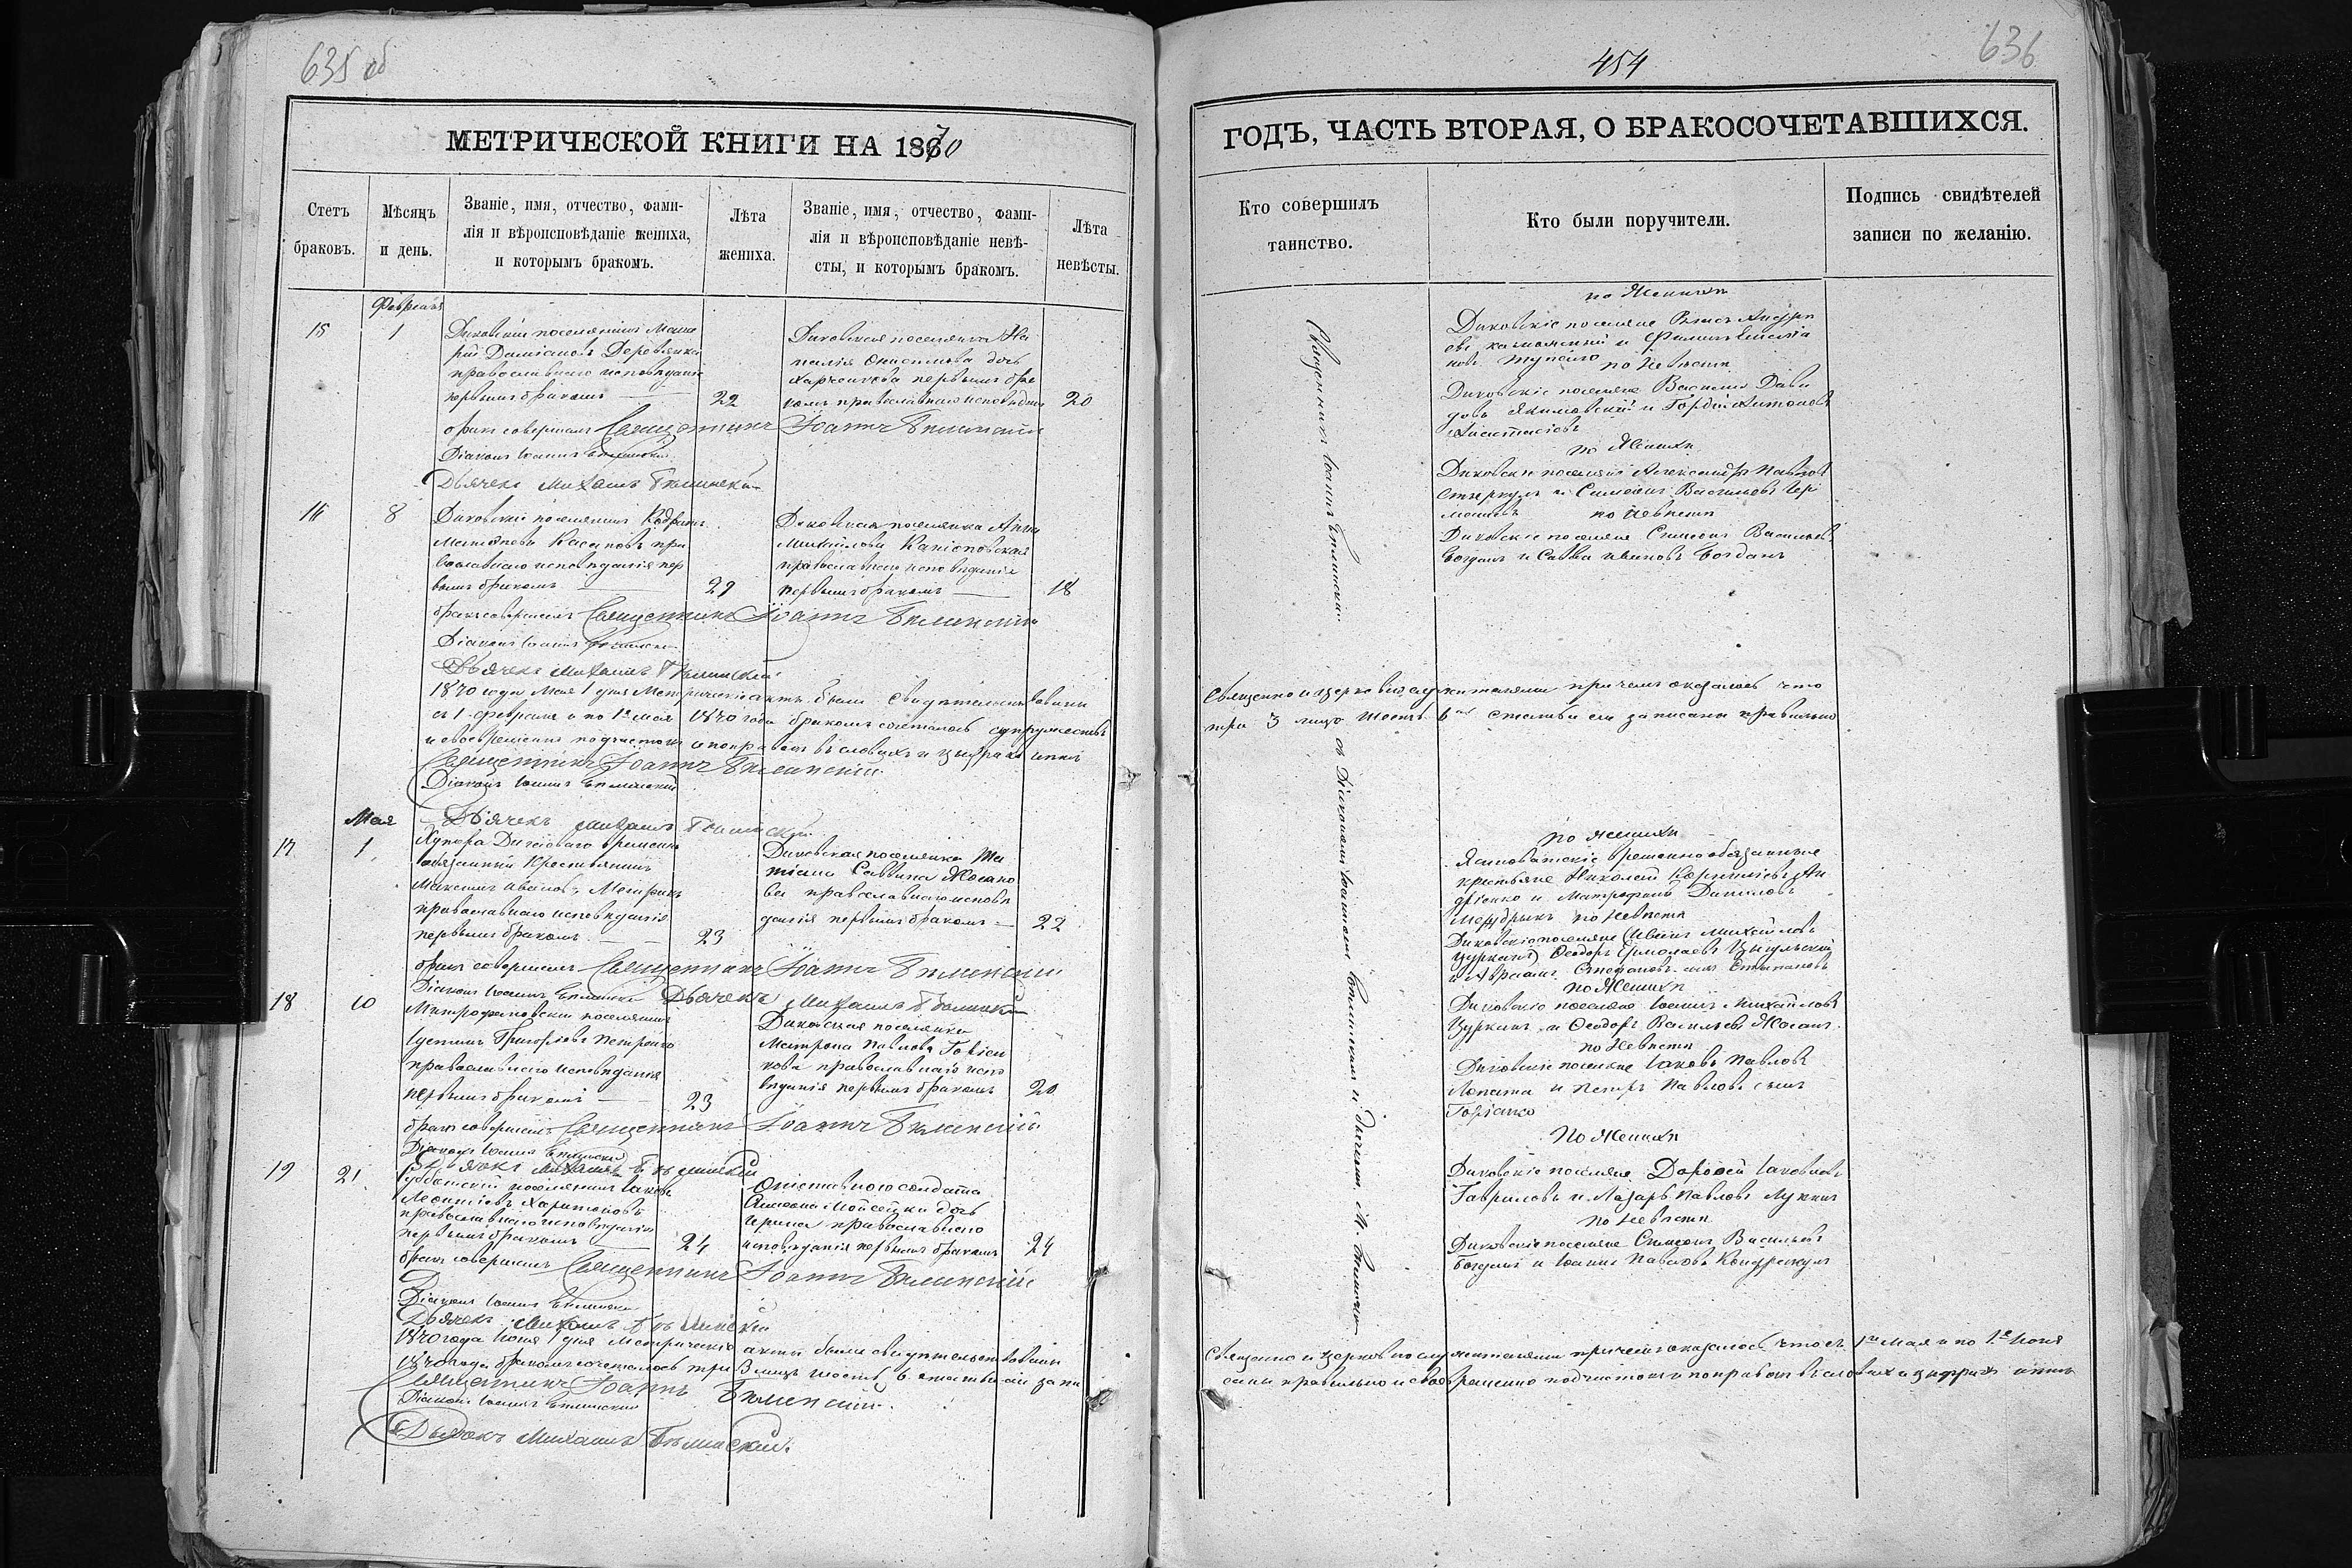 635 об
МЕТРИЧЕСКОЙ КНИГИ НА 1870
Счетъ браковъ.
Мѣсяцъ и день.
Званіе, имя, отчество, фами-
лія и вѣроисповѣданіе жениха,
и которымъ бракомъ.
Лѣта жениха.
Званіе, имя, отчество, фами-
лія и вѣроисповѣданіе невѣ-
сты, и которымъ бракомъ.
Лѣта невѣсты.
Февраль
15
1
Диковскій поселянинъ
Даміановъ Деревянко
православнаго исповѣданія
первымъ бракомъ
22
Диковская поселянка На
талія дочь
Харченкова первымъ бра
комъ православнаго исповѣданія
20
бракъ совершилъ Священникъ Іоаннъ Бѣлинскій
Діаконъ Іоаннъ Бѣлинскій
Дьячекъ Михаилъ Бѣлинскій
16
8
Диковскій поселянинъ
пра
вославнаго исповѣданія пер
вымъ бракомъ
Диковская поселянка Анна
Михайлова
православнаго исповѣданія
первымъ бракомъ
18
бракъ совершилъ Священникъ Іоаннъ Бѣлинскій
Діаконъ Іоаннъ Бѣлинскій
Дьячекъ Михаилъ Бѣлинскій
1870 года Мая 1 дня Метрическіе акты были свидѣтельствованы
съ 1 февраля и по 1е мая 1870 года бракомъ сочеталось супружествъ
и своевременно подчистокъ и поправокъ въ словахъ и цыфрахъ нѣтъ
Священникъ Іоаннъ Бѣлинскій
Діаконъ Іоаннъ Бѣлинскій
Дьячекъ Михаилъ Бѣлинскій
Мая
17
1
Хутора временно
обязанный крестьянинъ
Максимъ Ивановъ
православнаго исповѣданія
первымъ бракомъ
23
Диковская поселянка Та
тіана Саввина
ва православнаго исповѣ
данія первымъ бракомъ
22
бракъ совершилъ Священникъ Іоаннъ Бѣлинскій
Діаконъ Іоаннъ Бѣлинскій Дьячекъ Михаилъ Бѣлинскій
18
10
Митрофановскій поселянинъ
Іустинъ Григорьевъ Петренко
православнаго исповѣданія
первымъ бракомъ
23
Диковская поселянка
Матрона Павлова
кова православнаго испо
вѣданія первымъ бракомъ
20
бракъ совершилъ Священникъ Іоаннъ Бѣлинскій
Діаконъ Іоаннъ Бѣлинскій
Дьячекъ Михаилъ Бѣлинскій
19
21
поселянинъ Іаковъ
Леонтіевъ Харитоновъ
православнаго исповѣданія
первымъ бракомъ
24
солдата
дочь
Ирина православнаго
исповѣданія первымъ бракомъ
24
бракъ совершилъ Священникъ Іоаннъ Бѣлинскій
Діаконъ Іоаннъ Бѣлинскій
Дьячекъ Михаилъ Бѣлинскій
1870 года Іюня 1 дня Метрическіе акты были свидѣтельствованы
1870 года бракомъ сочеталось три 3 лицъ шесть 6 статьи сіи запи
Священникъ Іоаннъ Бѣлинскій
Діаконъ Іоаннъ Бѣлинскій
Дьячекъ Михаилъ Бѣлинскій.
454
636
ГОДЪ, ЧАСТЬ ВТОРАЯ, О БРАКОСОЧЕТАВШИХСЯ.
Кто совершилъ таинство.
Кто были поручители.
Подпись свидѣтелей
записи по желанію.
Священникъ Іоаннъ Бѣлинскій съ Діакономъ Іоанномъ Бѣлинскимъ и Дьячкомъ М. Бѣлинскимъ
по Женихѣ
Диковскіе поселяне
по Невѣстѣ
Диковскіе поселяне Василій Дави
довъ и Гордій Антоновъ
по Женихѣ
Диковскіе поселяне Александръ Павловъ
и Симеонъ Васильевъ
по Невѣстѣ
Диковскіе поселяне Симеонъ Васильевъ
Богданъ и Савва Ивановъ Богданъ
Священно и церковнослужителями причемъ оказалось что
три 3 лицъ шесть 6 статьи сіи записаны правильно
по Женихѣ
временно обязанные
крестьяне Николай
и Митрофанъ Даниловъ
по Невѣстѣ
Диковскіе поселяне Михайловъ
Цуркинъ Ѳеодоръ Ермолаевъ
по Женихѣ
Диковскіе поселяне Іоаннъ Михайловъ
Цуркинъ и Ѳеодоръ Васильевъ
по Невѣстѣ
Диковскіе поселяне Іаковъ Павловъ
Лопата и Петръ Павловъ сынъ
По Женихѣ
Диковскіе поселяне Дороѳей Іаковлевъ
Гавриловъ и Лазарь Павловъ
по Невѣстѣ
Диковскіе поселяне Симеонъ Васильевъ
Богданъ и Іоаннъ Павловъ
Священно и церковнослужителями причемъ оказалось что съ 1го Мая и по 1е Іюня
саны правильно и своевременно подчистокъ и поправокъ въ словахъ и цыфрахъ нѣтъ